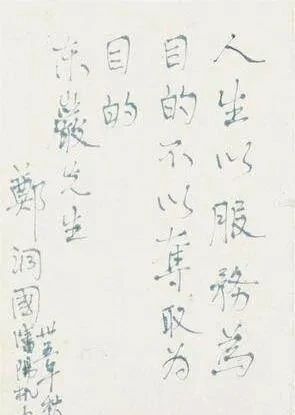 人生以服務為
目的不以奪取为
目的
东巖先生
鄭洞國
卅五年秋
瀋陽